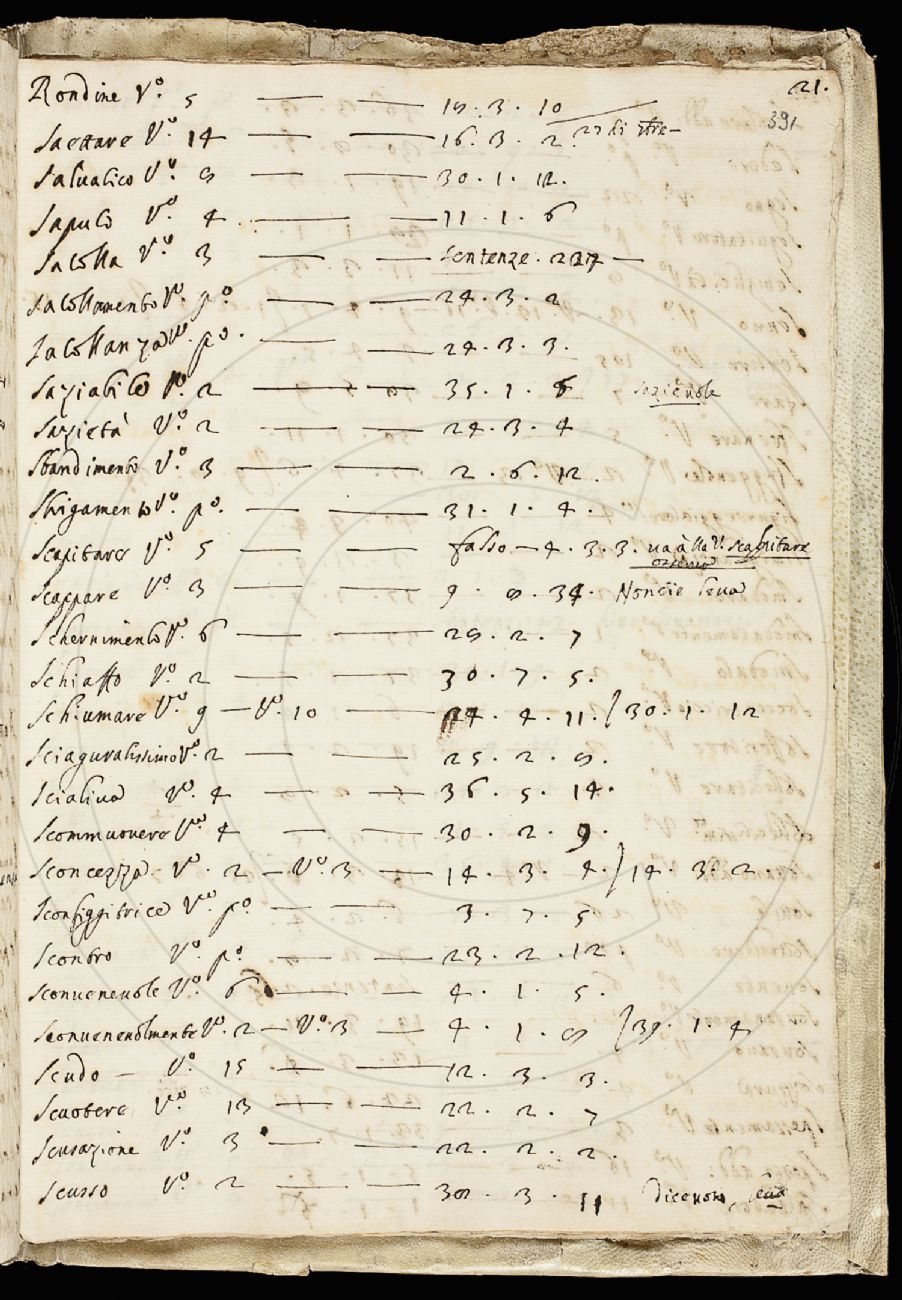 21.
391
Rondine Vº. 5 — — 19. 3. 10
Saettare Vº. 14 — — 16. 3. 2. 27 di tre—
Salvatico Vº. 9 — — 30. 1. 12.
Sapulo Vº. 4 — — 11. 1. 6
Sacolta Vº. 3 — — Sentenze. 227 —
Vº. pº. — — 24. 3. 2
Vº. pº. — — 24. 3. 3.
Saziabile Vº. 2 — — 35. 1. 6 Sazievole
Sazietà Vº. 2 — — 24. 3. 4
Sbandimento Vº. 3 — — 2. 6. 12.
Sbrigamento Vº. pº. — — 31. 1. 4.
Scapitare Vº. 5 — — falso — 4. 3. 3. va alla V. Scalpitare
Scappare Vº. 3 — — 9. 9. 34. Non
Schernimento Vº. 6 — — 29. 2. 7
Schiaffo Vº. 2 — — 30. 7. 5.
Schiumare Vº. 9 — Vº. 10 — 24. 4. 11. / 30. 1. 12
Sciaguratissimo Vº. 2 — — 25. 2. 9.
Scialiva Vº. 4 — — 36. 5. 14.
Scommuovere Vº. 4 — — 30. 2. 9.
Sconcezza Vº. 2 — Vº. 3 — 14. 3. 4. / 14. 3. 2.
Sconfiggitrice Vº. pº — — 3. 7. 5.
Scontro Vº. pº — — 23. 2. 12.
Sconvenevole Vº. 6 — — 4. 1. 5.
Sconvenevolmente Vº. 2 — Vº. 3 — 4. 1. 9 / 39. 1. 4
Scudo — Vº. 15 — — 12. 3. 3.
Scuotere Vº. 13 — — 22. 2. 7
Scusazione Vº. 3 — — 22. 2. 2.
Scusso Vº. 2 — — 39. 3. 11